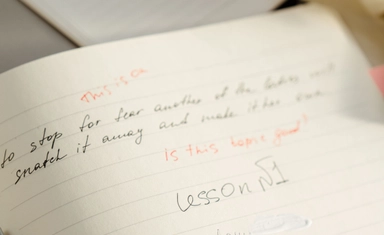 This is a
to stop for fear another of the ladies
snatch it away and make it her own
Is this topic good?
Lesson №1